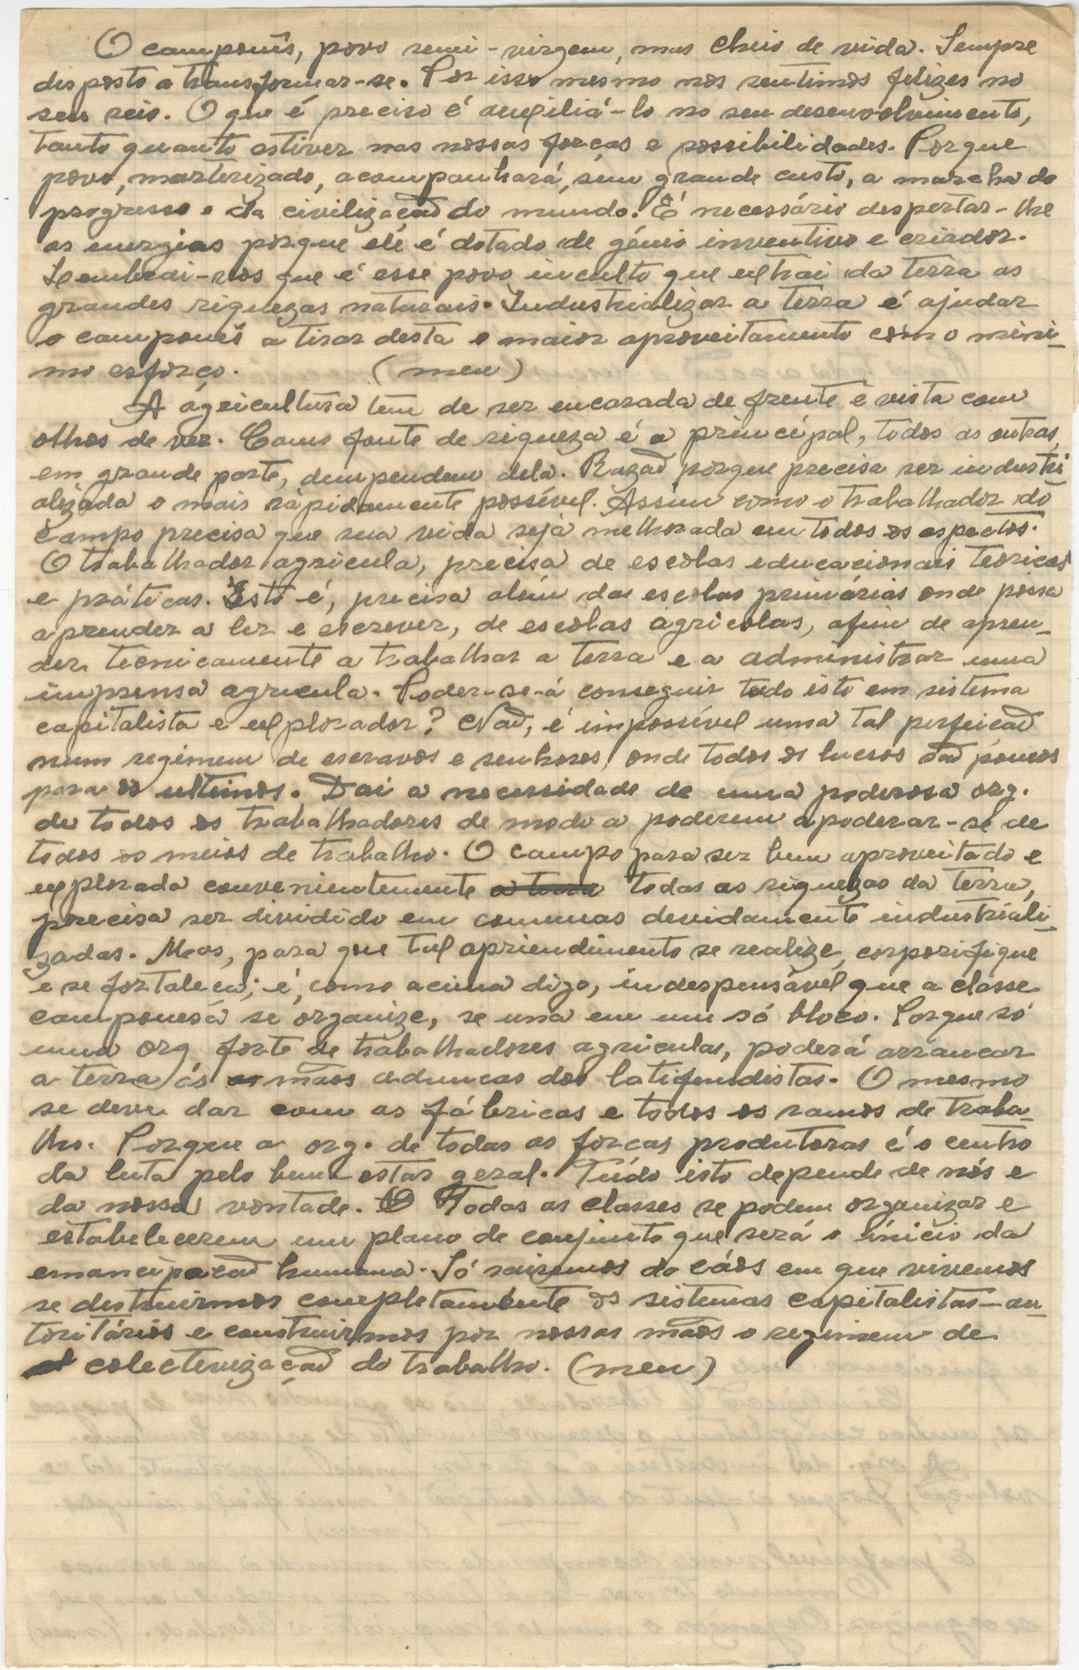 O camponês, povo semi-virgem, mas cheio de vida. Sempre
disposto a transformar-se. Por isso mesmo nos sentimos felizes no
seu seio. O que é preciso é auxiliá-lo no seu desenvolvimento,
tanto quanto estiver nas nossas forças e possibilidades. Porque
povo, martirizado, acompanhará, sem grande custo, a marcha do
progresso e da civilização do mundo. É necessário despertar-lhe
as energias porque ele é dotado de génio inventivo e criador.
Lembrai-vos que é esse povo inculto que extrai da terra as
grandes riquezas naturais. Industrializar a terra é ajudar
o camponês a tirar desta o maior aproveitamento com o míni-
mo esforço. (meu)
A agricultura tem de ser encarada de frente e vista com
olhos de ver. Como fonte de riqueza é a principal, todas as outras,
em grande parte, dempendem dela. Razão porque precisa ser industri
alizada o mais rápidamente possível. Assim como o trabalhador do
campo precisa que sua vida seja melhorada em todos os aspectos.
O trabalhador agricula, precisa de escolas educacionais teoricas
e práticas. Isto é, precisa além das escolas primárias onde possa
aprender a ler e escrever, de escolas agricolas, afim de apren-
der tecnicamente a trabalhar a terra e a administrar uma
imprensa agricula. Poder-se-á conseguir tudo isto em sistema
capitalista e explorador? Não, é impossível uma tal perfeição
num regimem de escravos e senhores, onde todos os lucros são poucos
para os ultimos. Dai a necessidade de uma poderosa org.
de todos os trabalhadores de modo a poderem apoderar-se de
todos os meios de trabalho. O campo para ser bem aproveitado e
explorada convenientemente a terra todas as riquezas da terra,
precisa ser dividido em comunas devidamente industriali-
zadas. Mas, para que tal apriendimento se realize, corporifique
e se fortaleça; é, como acima digo, indespensável que a classe
camponesa se organize, se una em um só bloco. Porque só
uma org. forte de trabalhadores agriculas, poderá arrancar
a terra ás mãos aduncas dos latifundistas. O mesmo
se deve dar com as fábricas e todos os ramos de traba-
lho. Porque a org. de todas as forças produtoras é o centro
da luta pelo bem estar geral. Tudo isto depende de nós e
da nossa vontade. Todas as classes se podem organizar e
estabelecerem um plano de conjunto que será o início da
emancipação humana. Só sairemos do cáos em que vivemos
se destruirmos completamente os sistemas capitalistas-au-
toritários e construirmos por nossas mãos o regimem de
colectivização do trabalho. (meu)